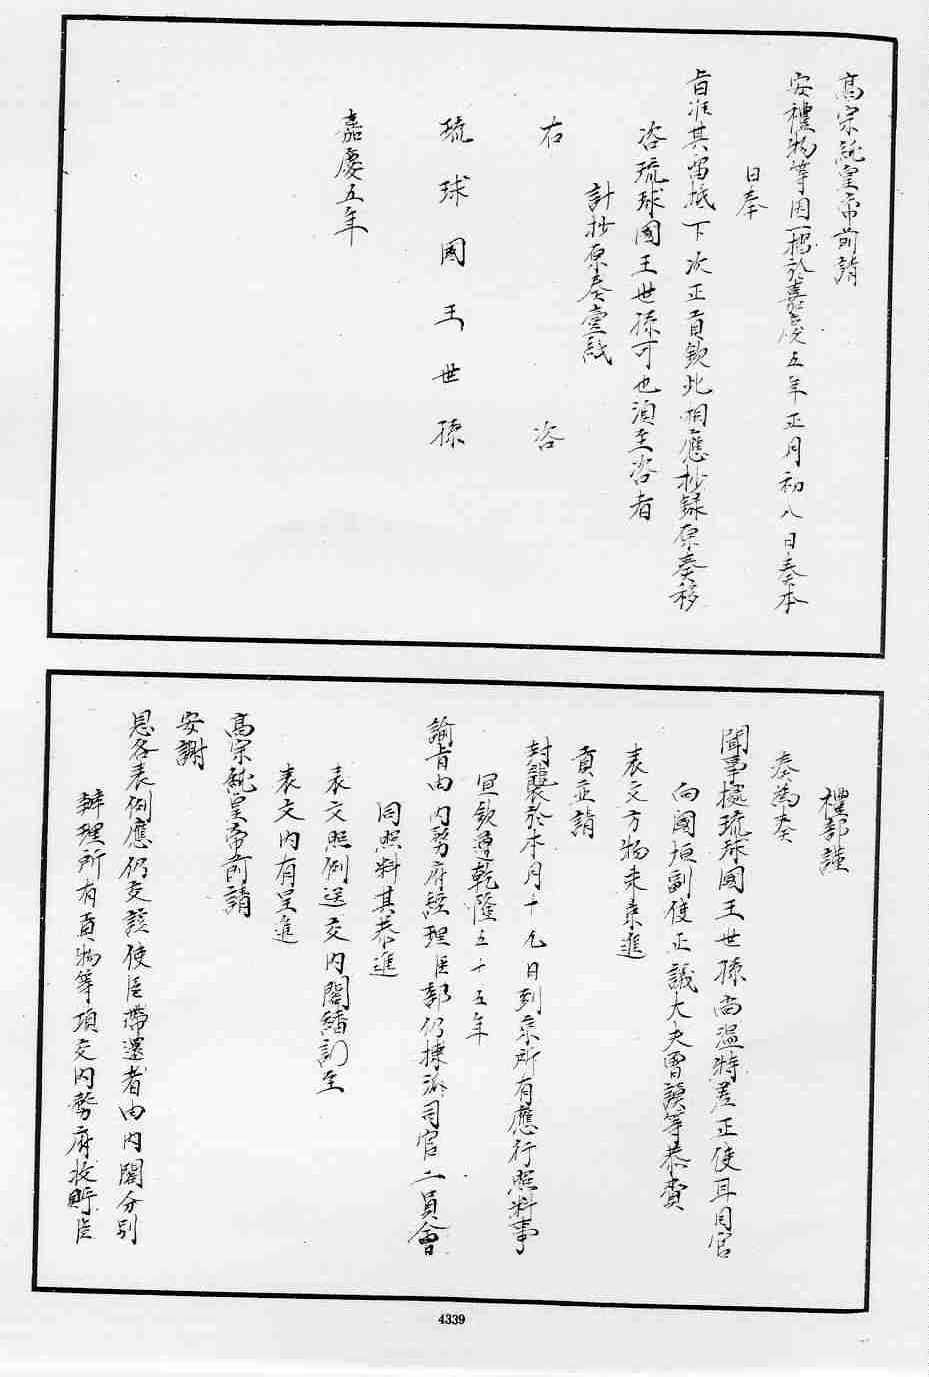 高宗純皇帝前請
安禮物等因一摺於嘉慶五年正月初八日奏本
日奉
旨准其留抵下次正貢欽此相應抄錄原奏移
咨琉球國王世孫可也須至咨者
計抄原奏壹紙
右咨
琉球國王世孫
嘉慶五年
禮部謹
奏為奏
聞事據琉球國王世孫尚溫特差正使耳目官
向國垣副使正議大夫曾謨等恭賫
表文方物來京進
貢並請
封襲於本月十九日到京所有應行照料事
宣欽遵乾隆五十五年
諭旨由內務府經理臣部仍揀派司官二員會
同照料其恭進
表文照例送交內閣繙訳至
表文內有呈進
高宗純皇帝前請
安謝
恩各表例應仍交該使臣帶還者由內閣分別
辦理所有貢物等項交內務府收貯臣
4339